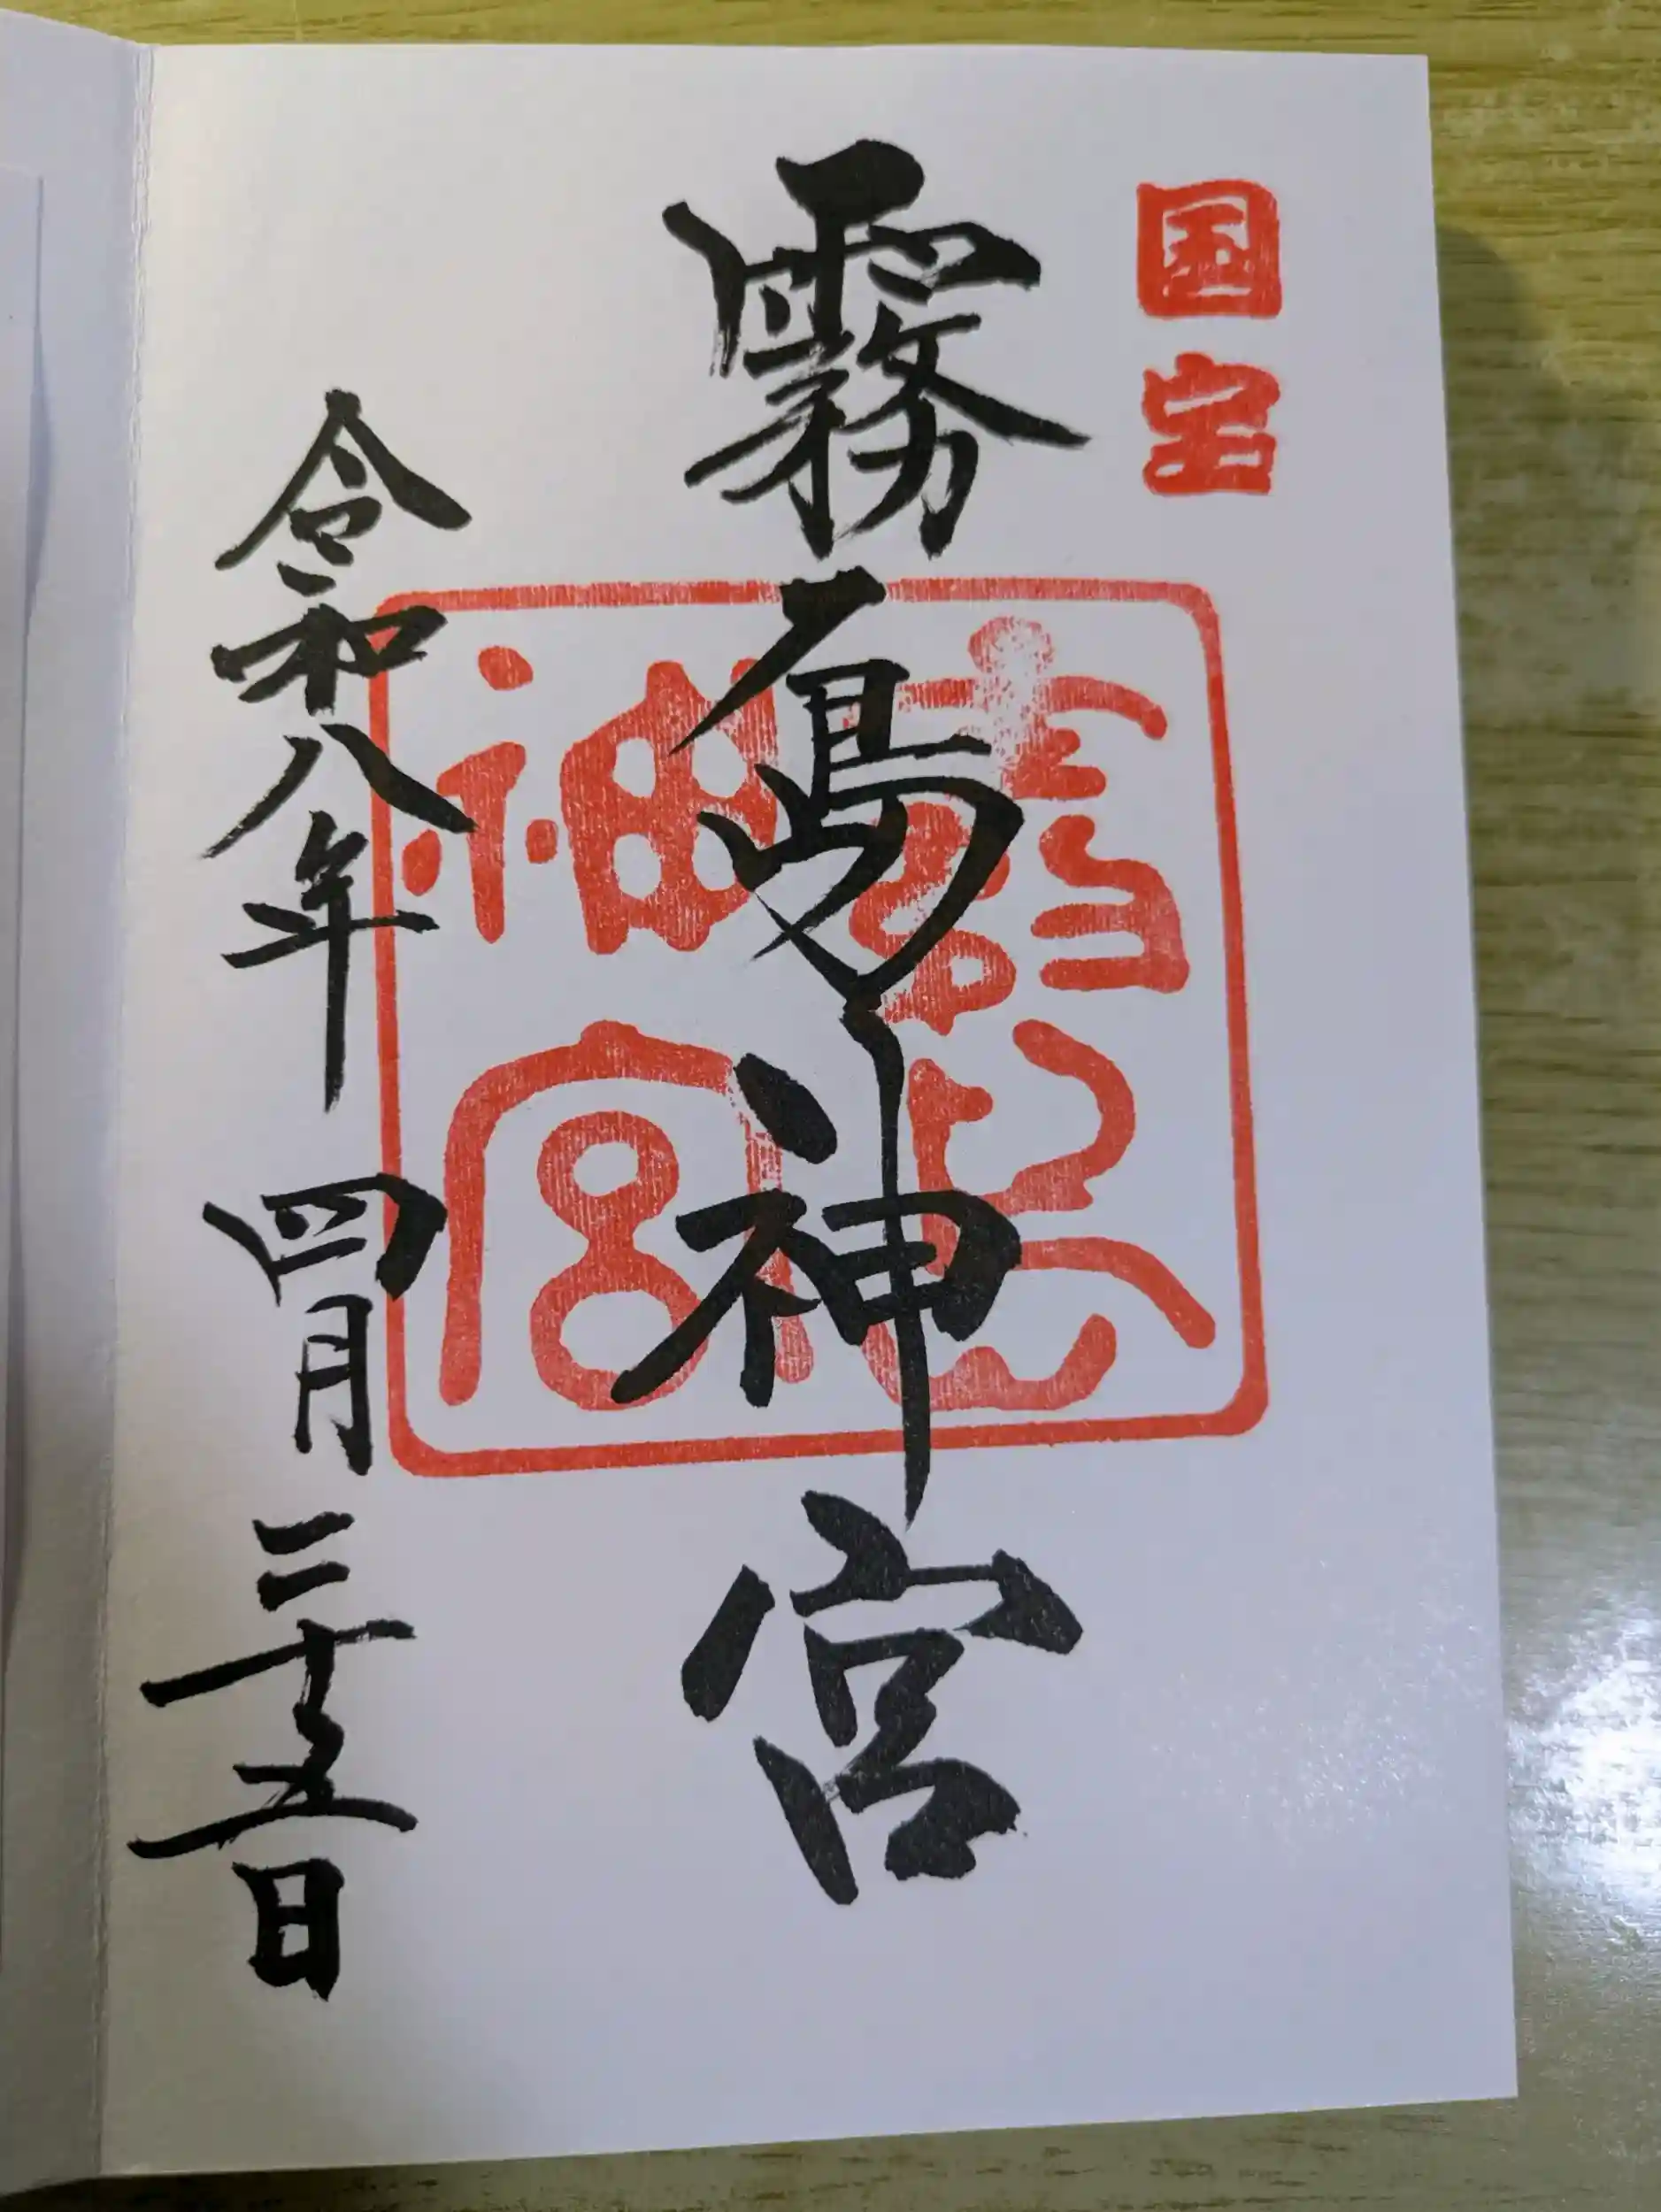 国宝
霧島神宮
霧島神宮
令和八年 四月 二十五日